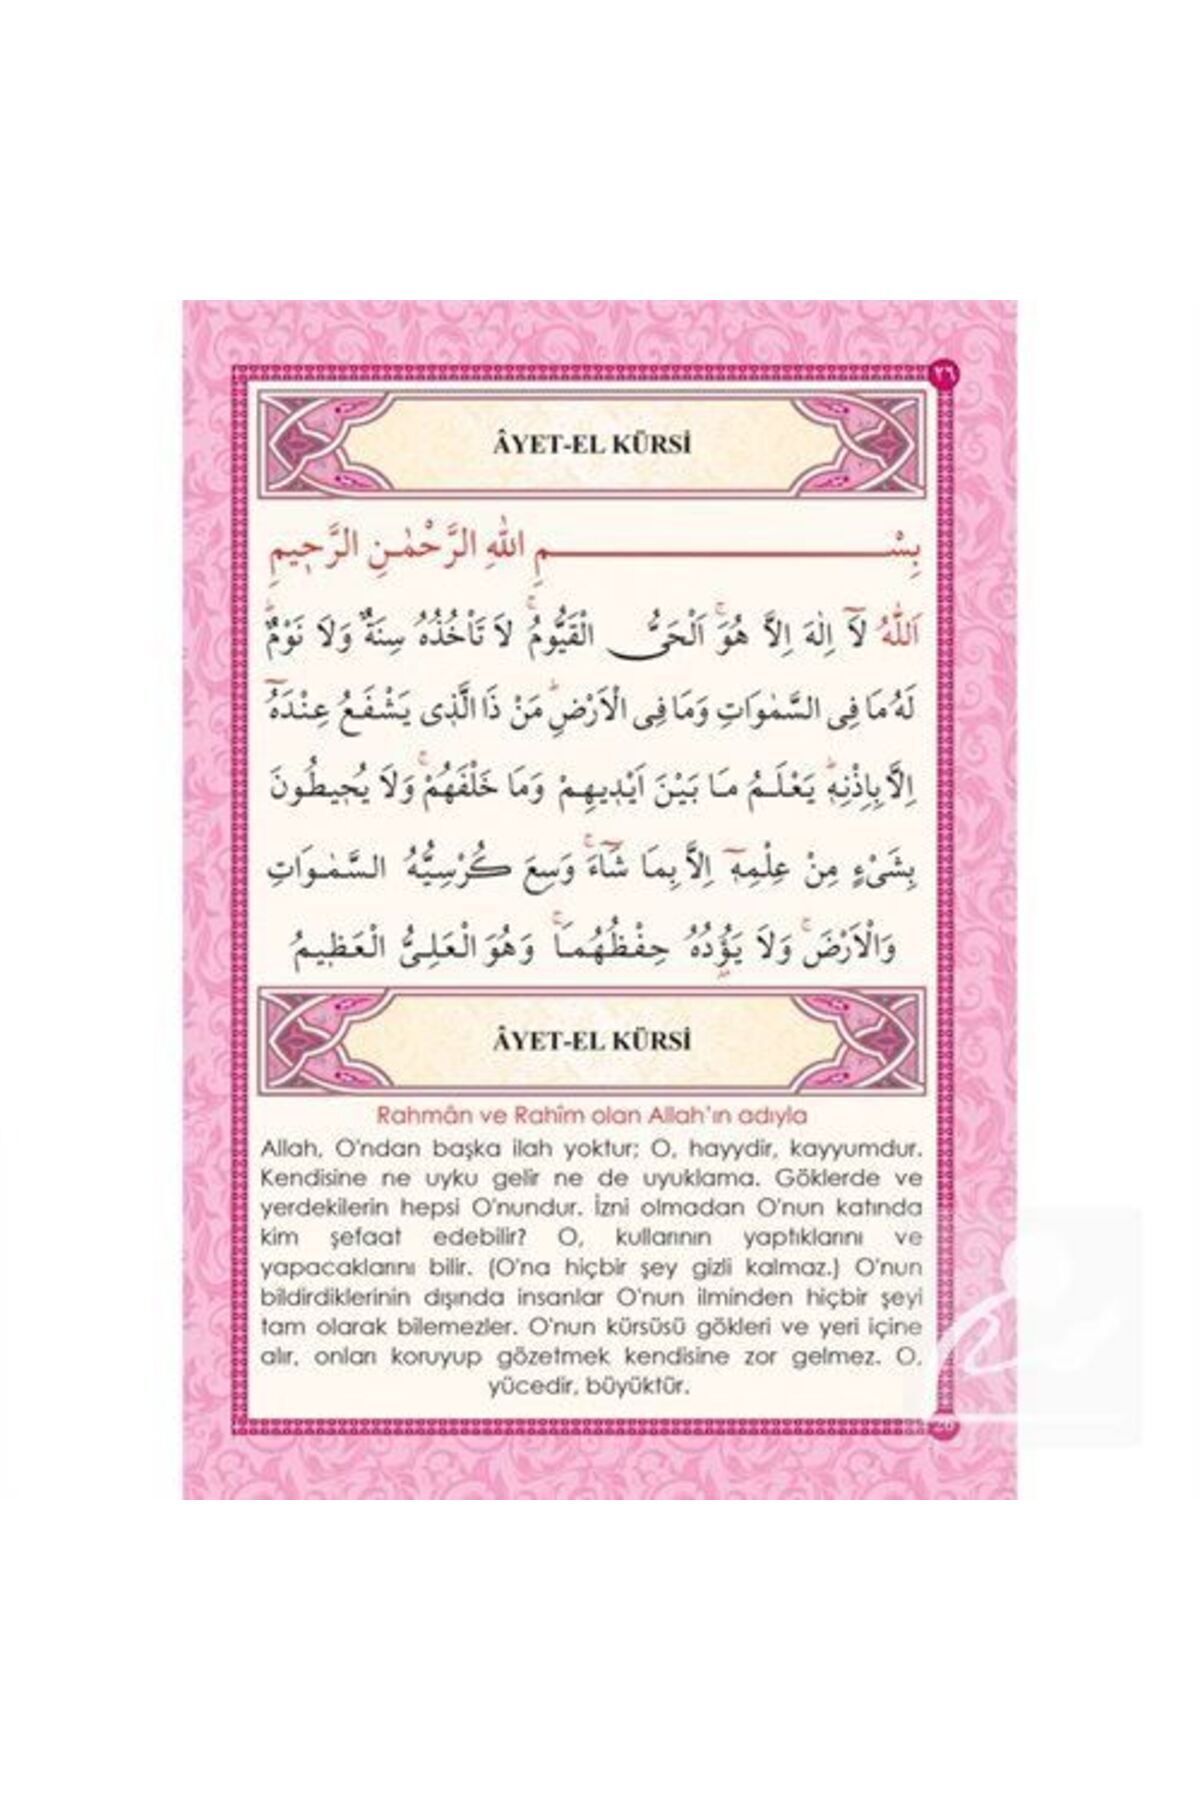 ٢٦
ÂYET-EL KÜRSİ
بِسْمِ اللّٰهِ الرَّحْمٰنِ الرَّح۪يمِ
اَللّٰهُ لَٓا اِلٰهَ اِلَّا هُوَۚ اَلْحَيُّ الْقَيُّومُۚ لَا تَأْخُذُهُ سِنَةٌ وَلَا نَوْمٌۜ
لَهُ مَا فِي السَّمٰوَاتِ وَمَا فِي الْاَرْضِۜ مَنْ ذَا الَّذ۪ي يَشْفَعُ عِنْدَهُٓ
اِلَّا بِاِذْنِه۪ۜ يَعْلَمُ مَا بَيْنَ اَيْد۪يهِمْ وَمَا خَلْفَهُمْۚ وَلَا يُح۪يطُونَ
بِشَيْءٍ مِنْ عِلْمِه۪ٓ اِلَّا بِمَا شَٓاءَۚ وَسِعَ كُرْسِيُّهُ السَّمٰوَاتِ
وَالْاَرْضَۚ وَلَا يَؤُ۫دُهُ حِفْظُهُمَاۚ وَهُوَ الْعَلِيُّ الْعَظ۪يمُ
ÂYET-EL KÜRSİ
Rahmân ve Rahîm olan Allah'ın adıyla
Allah, O'ndan başka ilah yoktur; O, hayydir, kayyumdur.
Kendisine ne uyku gelir ne de uyuklama. Göklerde ve
yerdekilerin hepsi O'nundur. İzni olmadan O'nun katında
kim şefaat edebilir? O, kullarının yaptıklarını ve
yapacaklarını bilir. (O'na hiçbir şey gizli kalmaz.) O'nun
bildirdiklerinin dışında insanlar O'nun ilminden hiçbir şeyi
tam olarak bilemezler. O'nun kürsüsü gökleri ve yeri içine
alır, onları koruyup gözetmek kendisine zor gelmez. O,
yücedir, büyüktür.